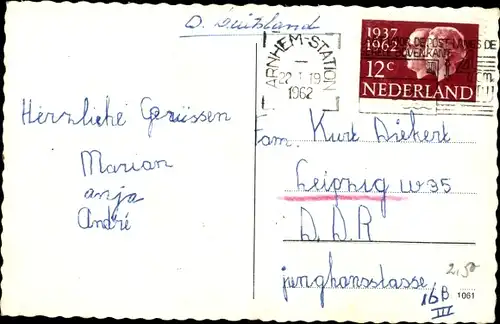 O. Duitsland
ARNHEM-STATION
22. 1 19
1962
1937
1962
12c
NEDERLAND
Herzliche Gerüssen
Marian
anja
André
Fam. Kurt Diehert
Leipzig W 35
D.D.R
junghansstasse
2,50
16B
III
1061